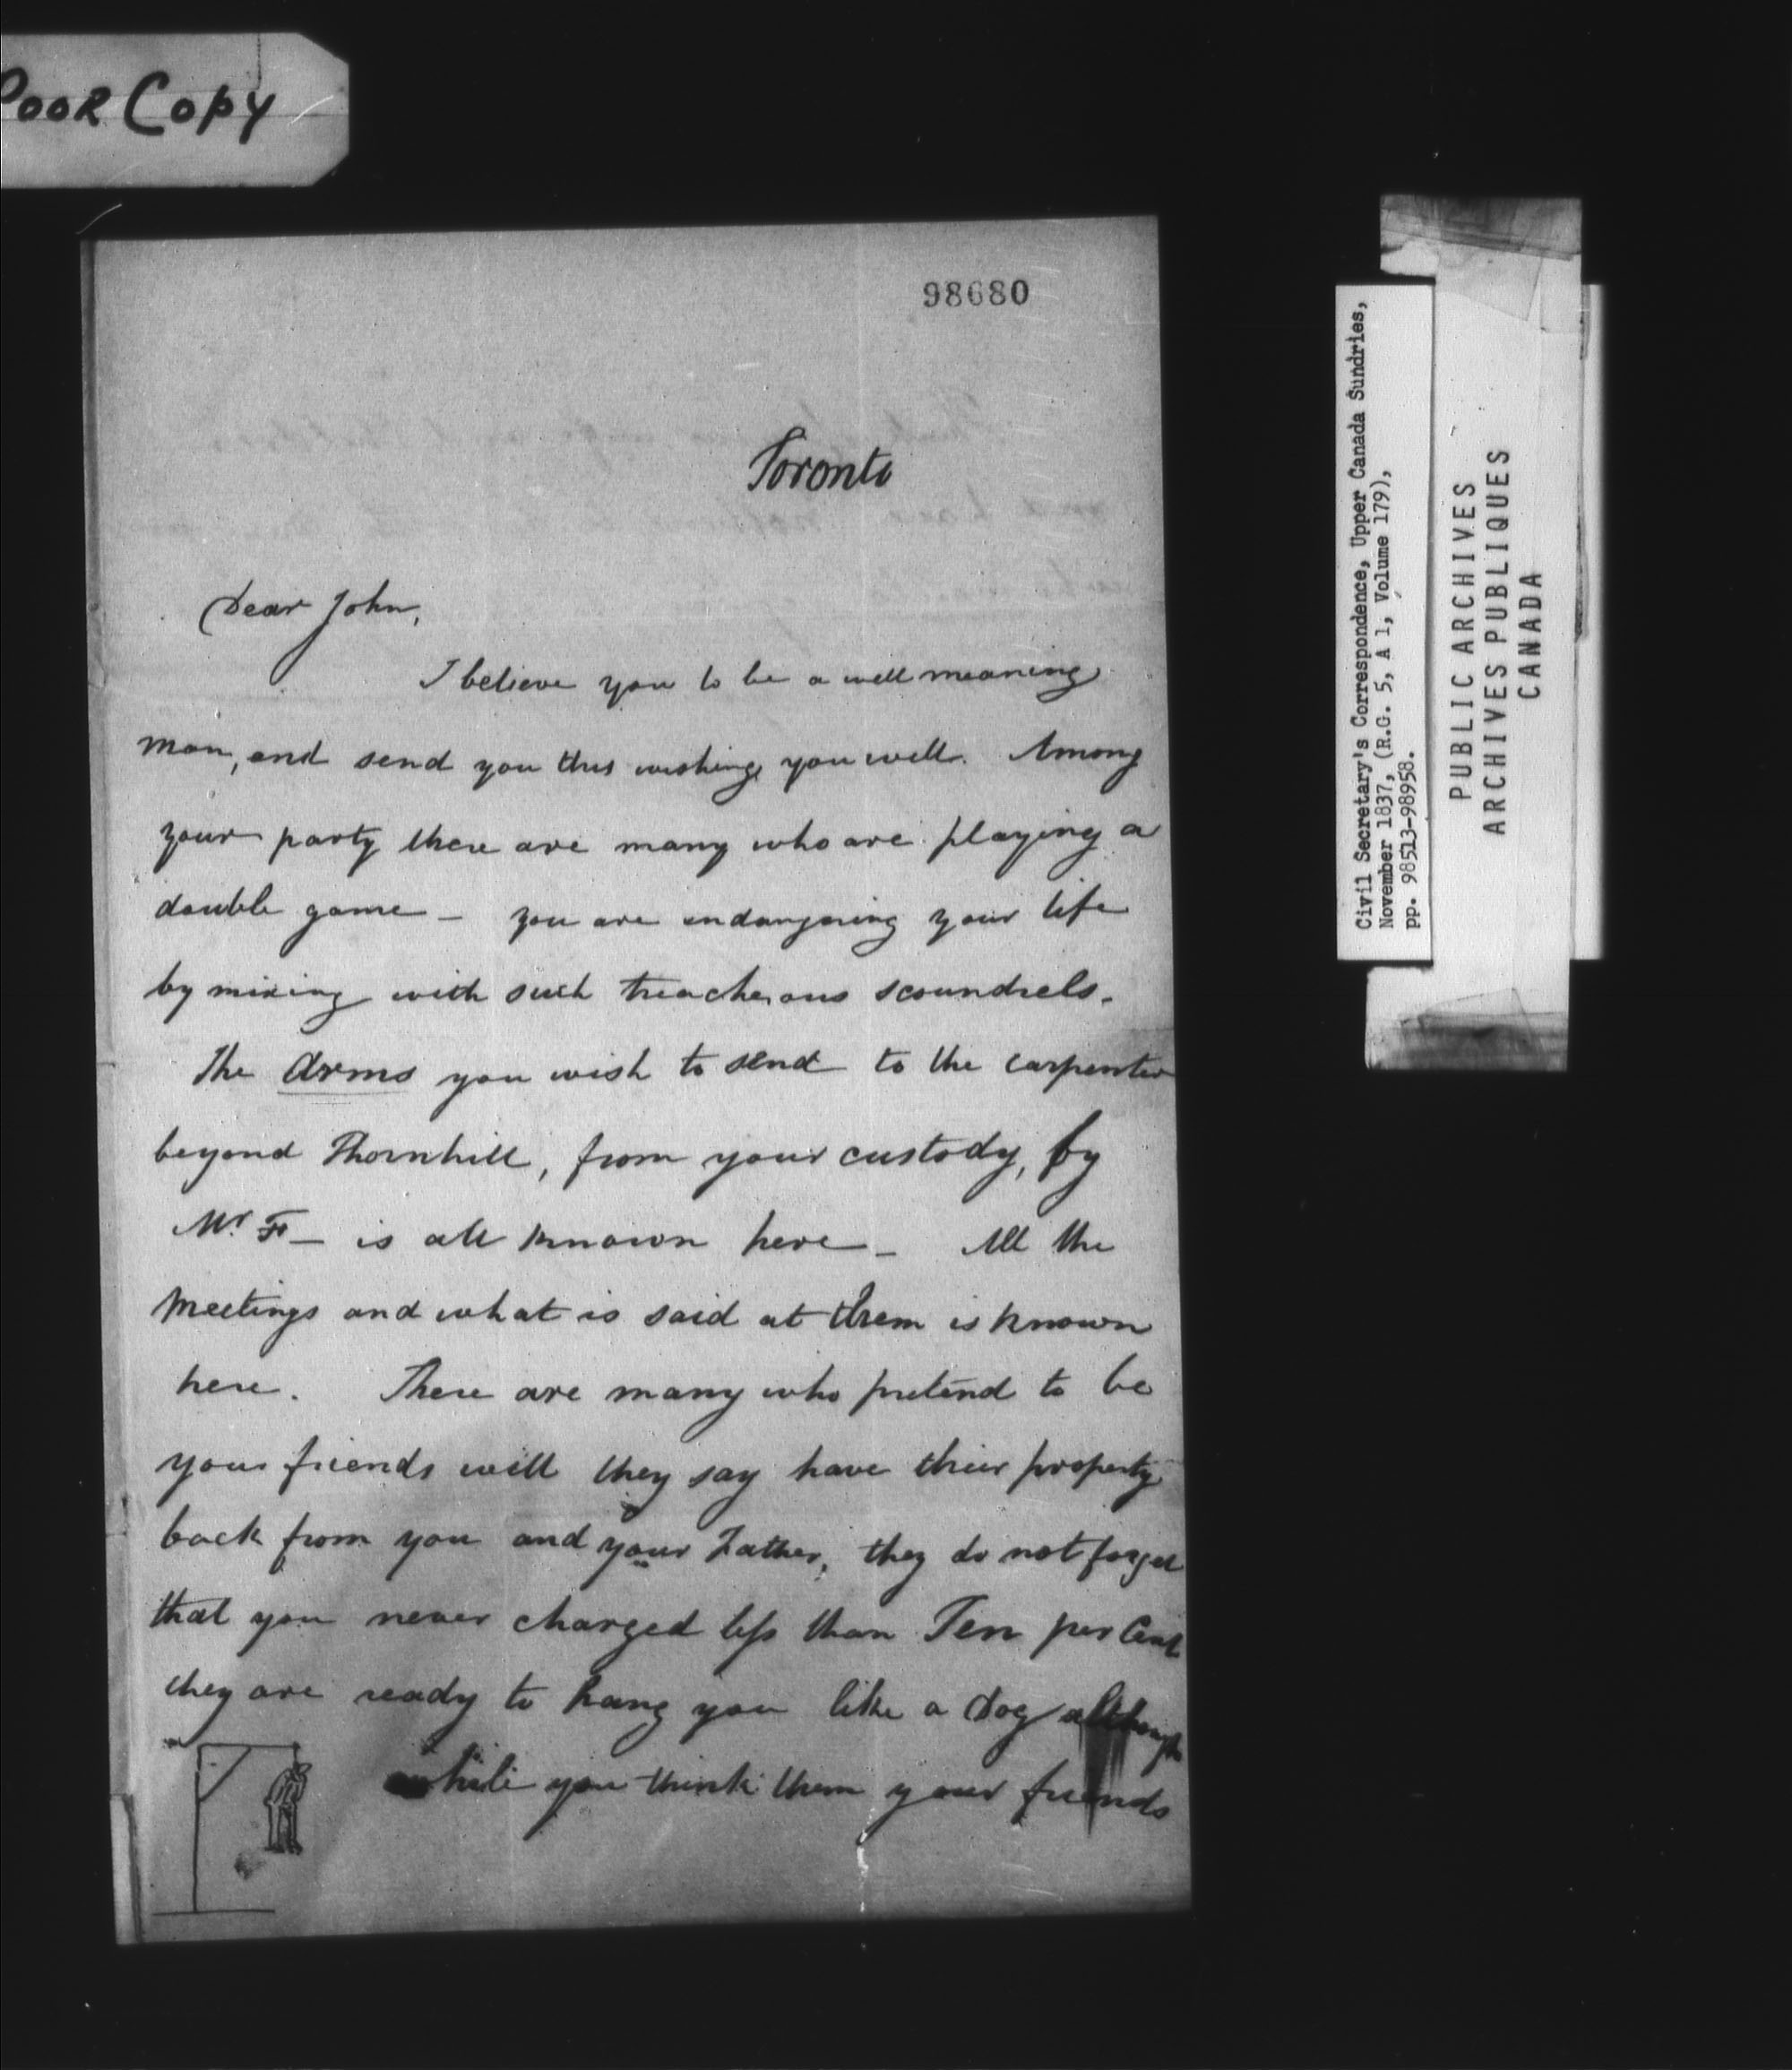 Poor Copy
98680
Toronto
Dear John,
I believe you to be a well meaning
man, and send you this wishing you well. Among
your party there are many who are playing a
double game – you are endangering your life
by mixing with such treacherous scoundrels.
The Arms you wish to send to the carpenter
beyond Thornhill, from your custody, by
Mr. F – is all known here – All the
meetings and what is said at them is known
here. There are many who pretend to be
your friends will they say have their property
back from you and your Father, they do not forget
that you never charged less than Ten per Cent
they are ready to hang you like a dog although
while you think them your friends
Civil Secretary's Correspondence, Upper Canada Sundries,
November 1837, (R.G. 5, A 1, Volume 179),
pp. 98513-98958.
PUBLIC ARCHIVES
ARCHIVES PUBLIQUES
CANADA